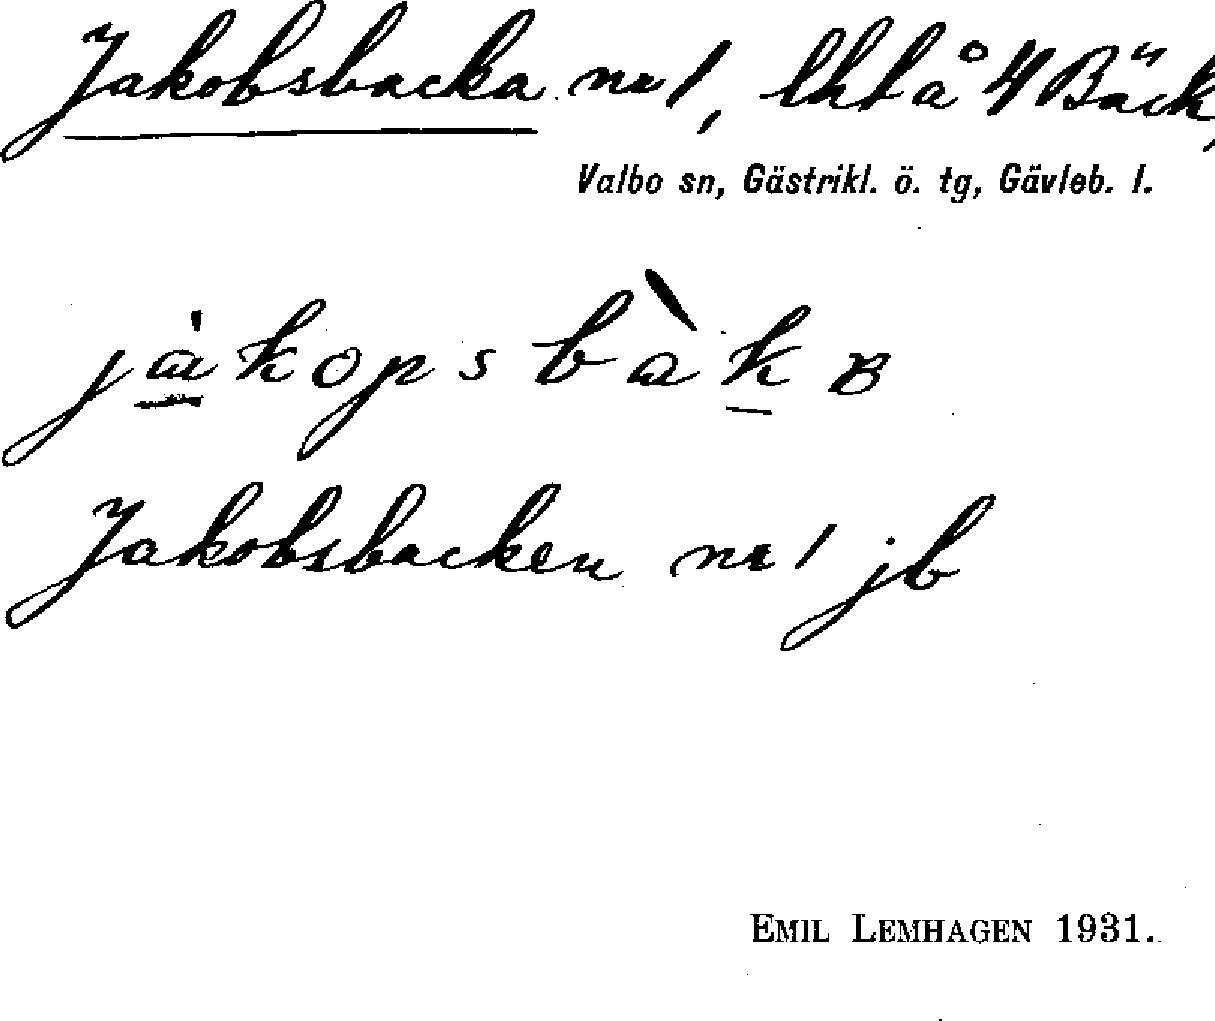 Jakobsbacka nr 1, lht å 4 Bäck,
Valbo sn, Gästrikl. ö. tg, Gävleb. l.
jakopsbàkɐ
Jakobsbacken nr 1 jb
EMIL LEMHAGEN 1931.